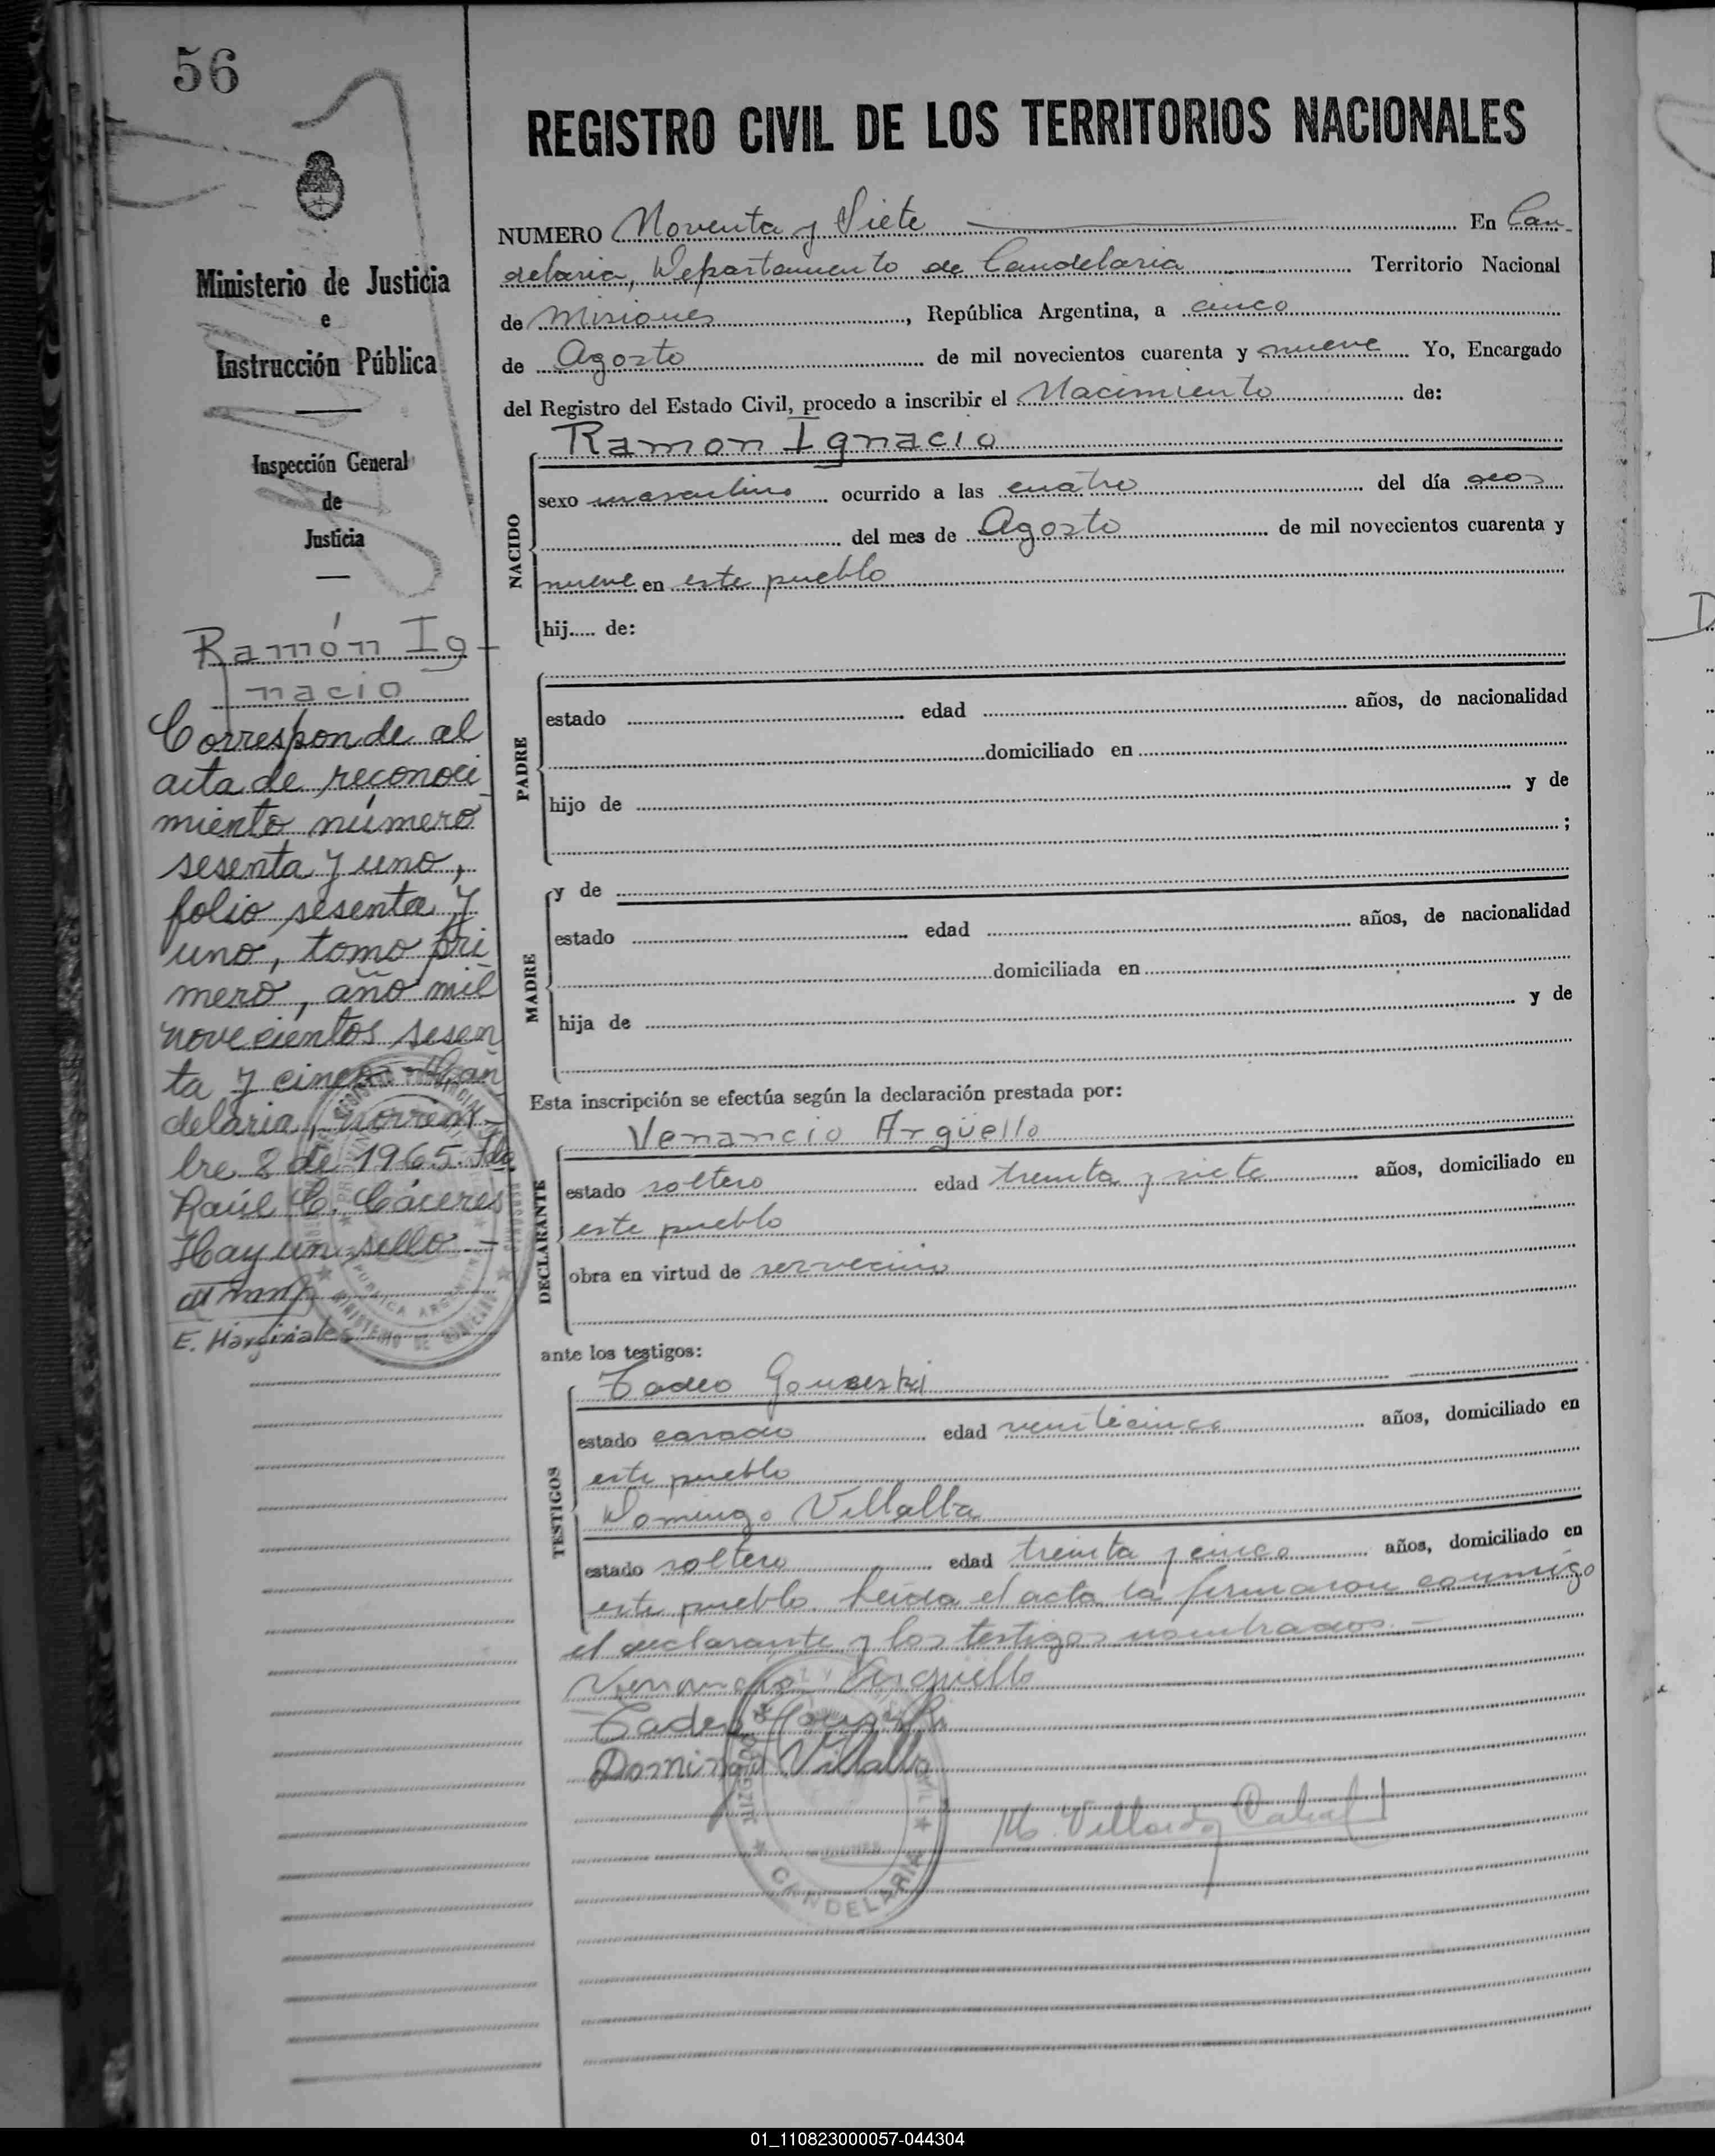 56
REGISTRO CIVIL DE LOS TERRITORIOS NACIONALES
Ministerio de Justicia
e
Instrucción Pública
Inspección General
de
Justicia
Ramón Ig-
nacio
Corresponde al
acta de reconoci
miento número
sesenta y uno,
folio sesenta y
uno, tomo pri
mero, año mil
novecientos sesen
ta y cinco - Can
delaria, noviem
bre 8 de 1965. Fdo.
Raúl C. Cáceres
Hay un sello -
E. Marginales
NUMERO Noventa y Siete En Can-
delaria, Departamento de Candelaria Territorio Nacional
de Misiones, República Argentina, a cinco
de Agosto de mil novecientos cuarenta y nueve Yo, Encargado
del Registro del Estado Civil, procedo a inscribir el Nacimiento de:
Ramon Ignacio
NACIDO
sexo masculino ocurrido a las cuatro del día dos
del mes de Agosto de mil novecientos cuarenta y
nueve en este pueblo
hij..... de:
PADRE
estado edad años, de nacionalidad
domiciliado en
hijo de y de
;
MADRE
y de
estado edad años, de nacionalidad
domiciliada en
hija de y de
Esta inscripción se efectúa según la declaración prestada por:
Venancio Argüello
DECLARANTE
estado soltero edad treinta y siete años, domiciliado en
este pueblo
obra en virtud de
ante los testigos:
TESTIGOS
Tadeo
estado casado edad veinticinco años, domiciliado en
este pueblo
Domingo Villalba
estado soltero edad treinta y cinco años, domiciliado en
este pueblo. Leída el acta la firmaron conmigo
el declarante y los testigos nombrados. -
Venancio Argüello
Tadeo
Domingo Villalba
M. Cabral
CANDELARIA
01_110823000057-044304